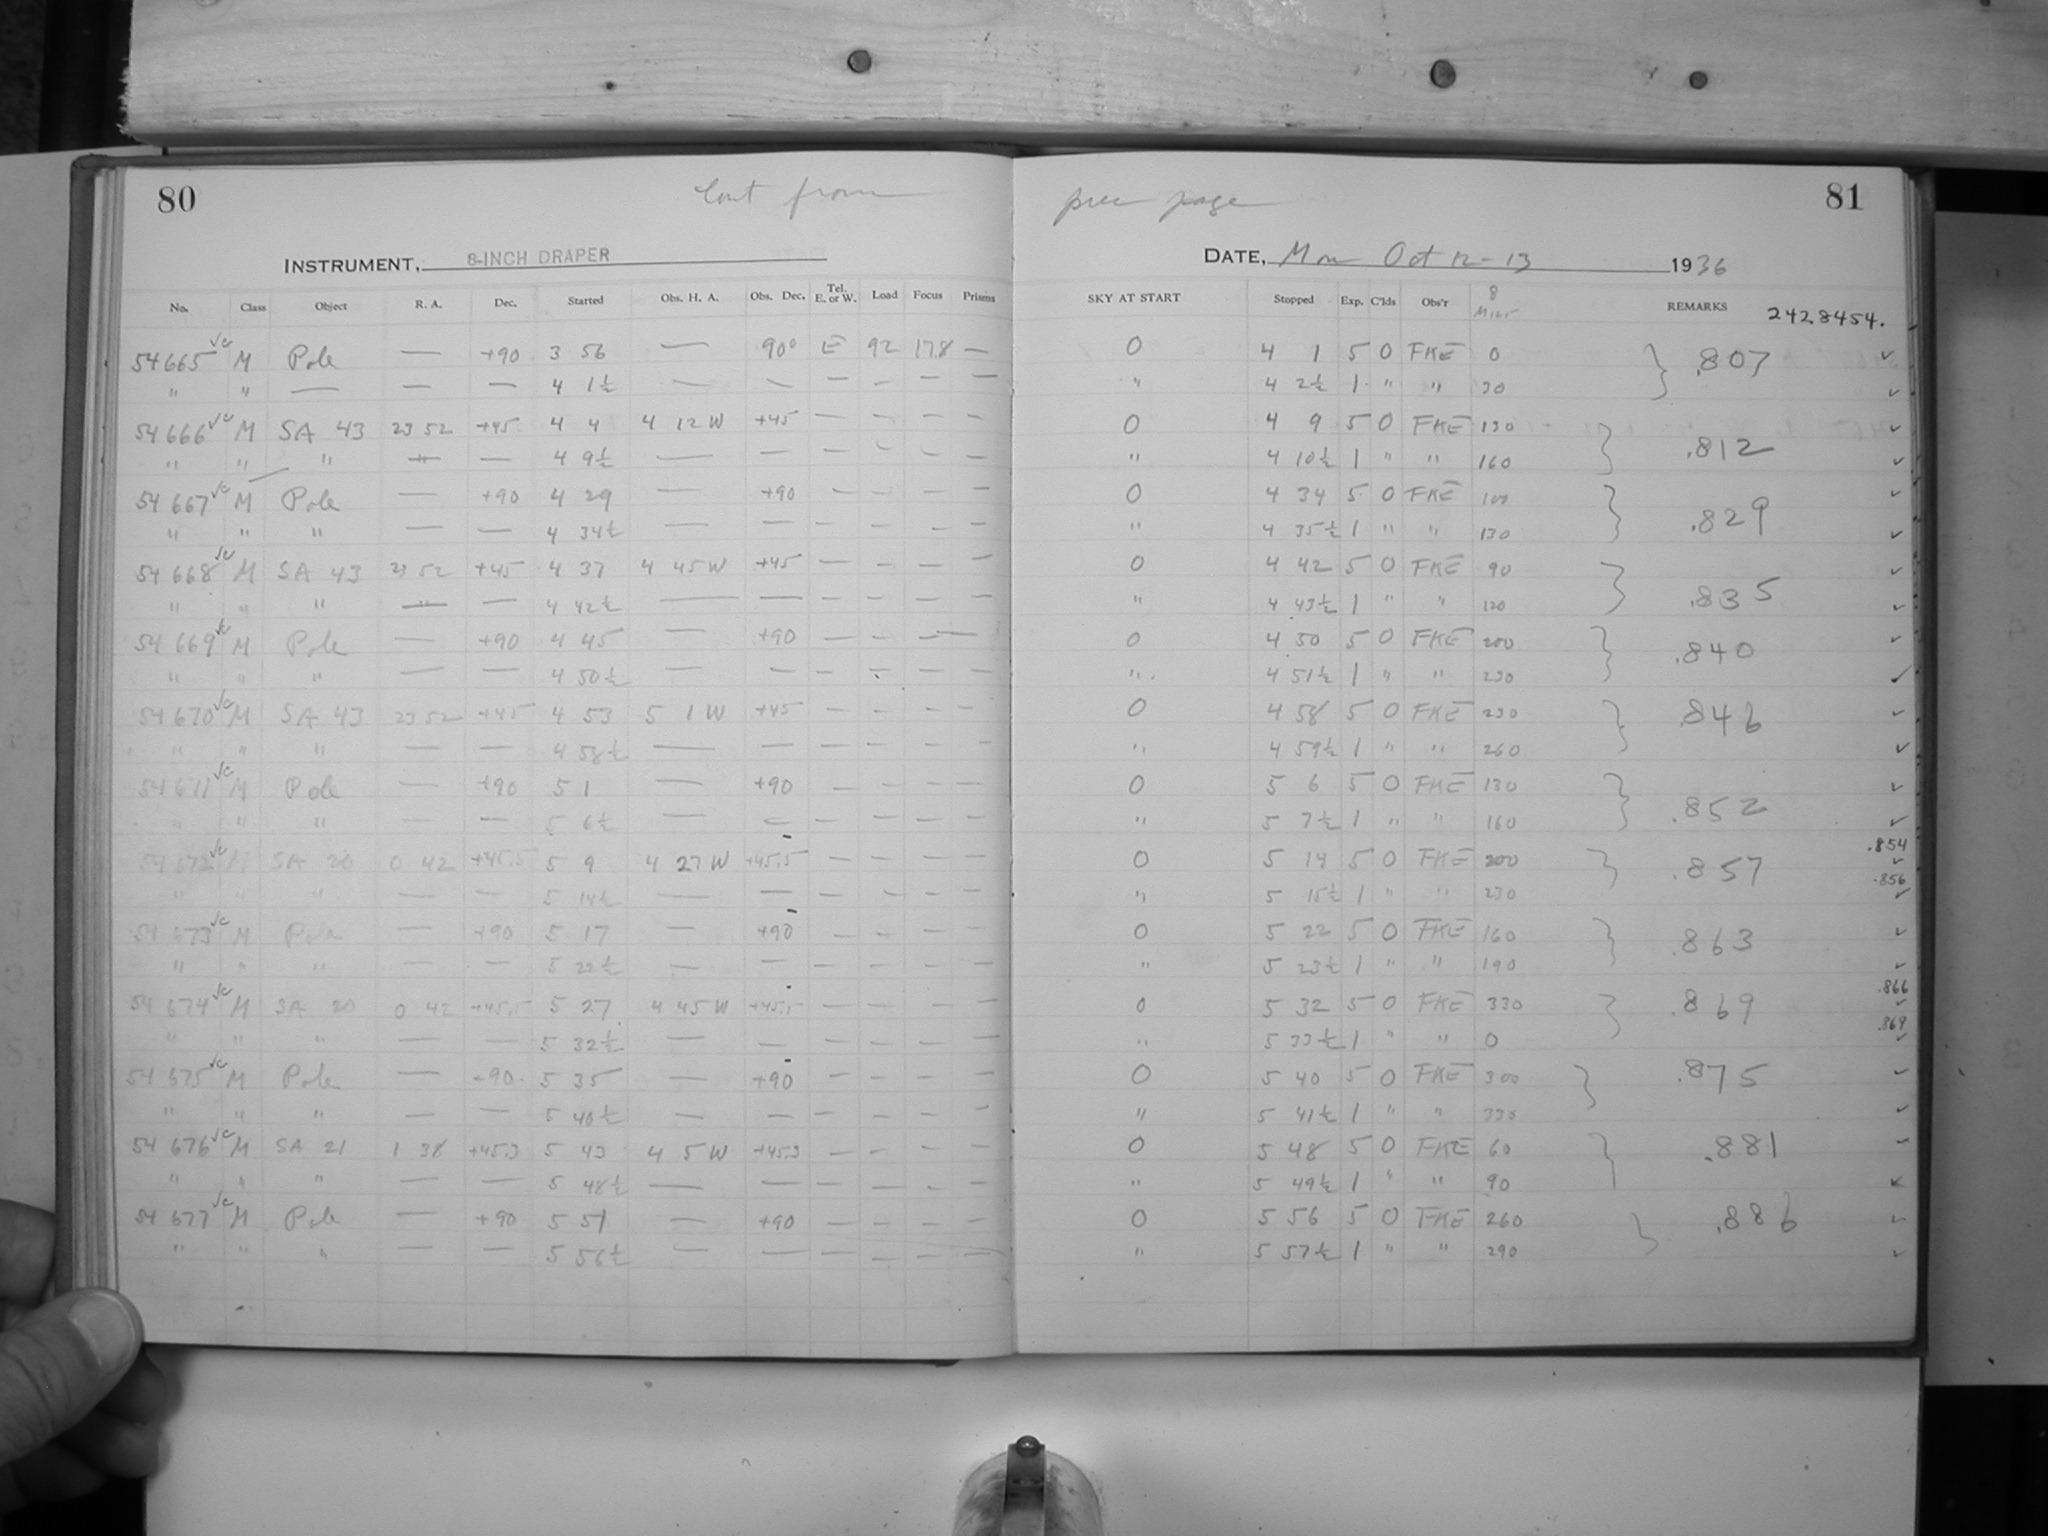 80 Cont from prev page 81
INSTRUMENT, 8-INCH DRAPER DATE, Mon Oct 12-13 1936
No. Class Object R. A. Dec. Started Obs. H. A. Obs. Dec. Tel. E. or W. Load Focus Prisms SKY AT START Stopped Exp. C'lds Obs'r 8 REMARKS 2428454.
54665 √c M Pole — +90 3 56 — 90° E 92 178 — 0 4 1 5 0 FKE 0 } .807 ✓
" " — — — 4 1½ — — — — — — " 4 2½ 1 " " 30 ✓
54666 √c M SA 43 23 52 +45 4 4 4 12 W +45 — — — — 0 4 9 5 0 FKE 130 } .812 ✓
" " " " — 4 9½ — — — — — — " 4 10½ 1 " " 160 ✓
54667 √c M Pole — +90 4 29 — +90 — — — — 0 4 34 5 0 FKE 100 } .829 ✓
" " " — — 4 34½ — — — — — — " 4 35½ 1 " " 130 ✓
54668 √c M SA 43 23 52 +45 4 37 4 45 W +45 — — — — 0 4 42 5 0 FKE 90 } .835 ✓
" " " " — 4 42½ — — — — — — " 4 43½ 1 " " 120 ✓
54669 √c M Pole — +90 4 45 — +90 — — — — 0 4 50 5 0 FKE 200 } .840 ✓
" " " — — 4 50½ — — — — — — " 4 51½ 1 " " 230 ✓
54670 √c M SA 43 23 52 +45 4 53 5 1 W +45 — — — — 0 4 58 5 0 FKE 230 } .846 ✓
" " " — — 4 58½ — — — — — — " 4 59½ 1 " " 260 ✓
54671 √c M Pole — +90 5 1 — +90 — — — — 0 5 6 5 0 FKE 130 } .852 ✓
" " " — — 5 6½ — — — — — — " 5 7½ 1 " " 160 ✓
54672 √c M SA 20 0 42 +45.5 5 9 4 27 W +45.5 — — — — 0 5 14 5 0 FKE 200 } .857 .854 ✓
" " " — — 5 14½ — — — — — — " 5 15½ 1 " " 230 .856 ✓
54673 √c M Pole — +90 5 17 — +90 — — — — 0 5 22 5 0 FKE 160 } .863 ✓
" " " — — 5 22½ — — — — — — " 5 23½ 1 " " 190 ✓
54674 √c M SA 20 0 42 +45.5 5 27 4 45 W +45.5 — — — — 0 5 32 5 0 FKE 330 } .869 .866 ✓
" " " — — 5 32½ — — — — — — " 5 33½ 1 " " 0 .869 ✓
54675 √c M Pole — +90 5 35 — +90 — — — — 0 5 40 5 0 FKE 300 } .875 ✓
" " " — — 5 40½ — — — — — — " 5 41½ 1 " " 330 ✓
54676 √c M SA 21 1 38 +45.3 5 43 4 5 W +45.3 — — — — 0 5 48 5 0 FKE 60 } .881 ✓
" " " — — 5 48½ — — — — — — " 5 49½ 1 " " 90 ✓
54677 √c M Pole — +90 5 51 — +90 — — — — 0 5 56 5 0 FKE 260 } .886 ✓
" " " — — 5 56½ — — — — — — " 5 57½ 1 " " 290 ✓